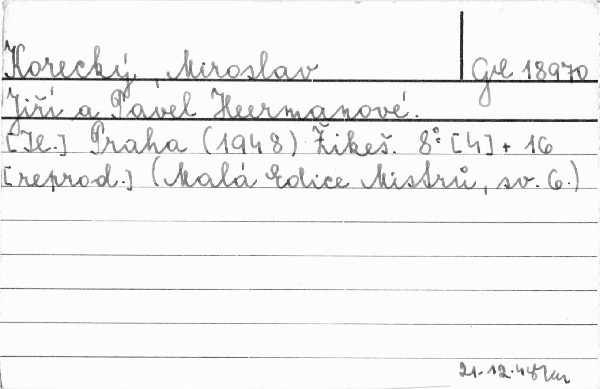 Korecký, Miroslav Gd 18970
Jiří a Pavel Heermanové.
[Il.] Praha (1948) Žikeš. 8° [4] + 16
[reprod.] (Malá Edice Mistrů, sv. 6.)
21.12.48